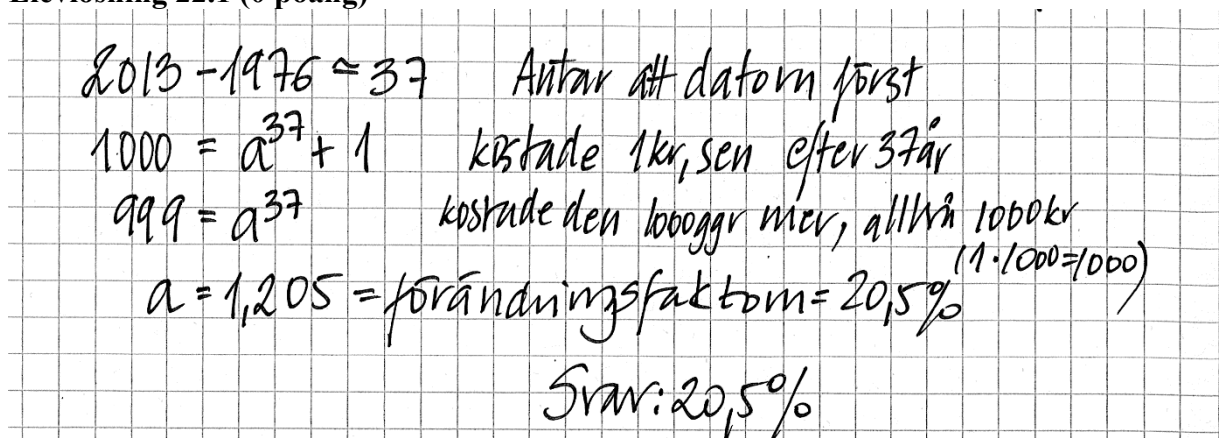 2013-1976=37 Antar att datorn först
1000 = a^37 + 1 kostade 1kr, sen efter 37år
999 = a^37 kostade den 1000ggr mer, alltså 1000kr
(1·1000=1000)
a = 1,205 = förändringsfaktorn = 20,5%
Svar: 20,5%